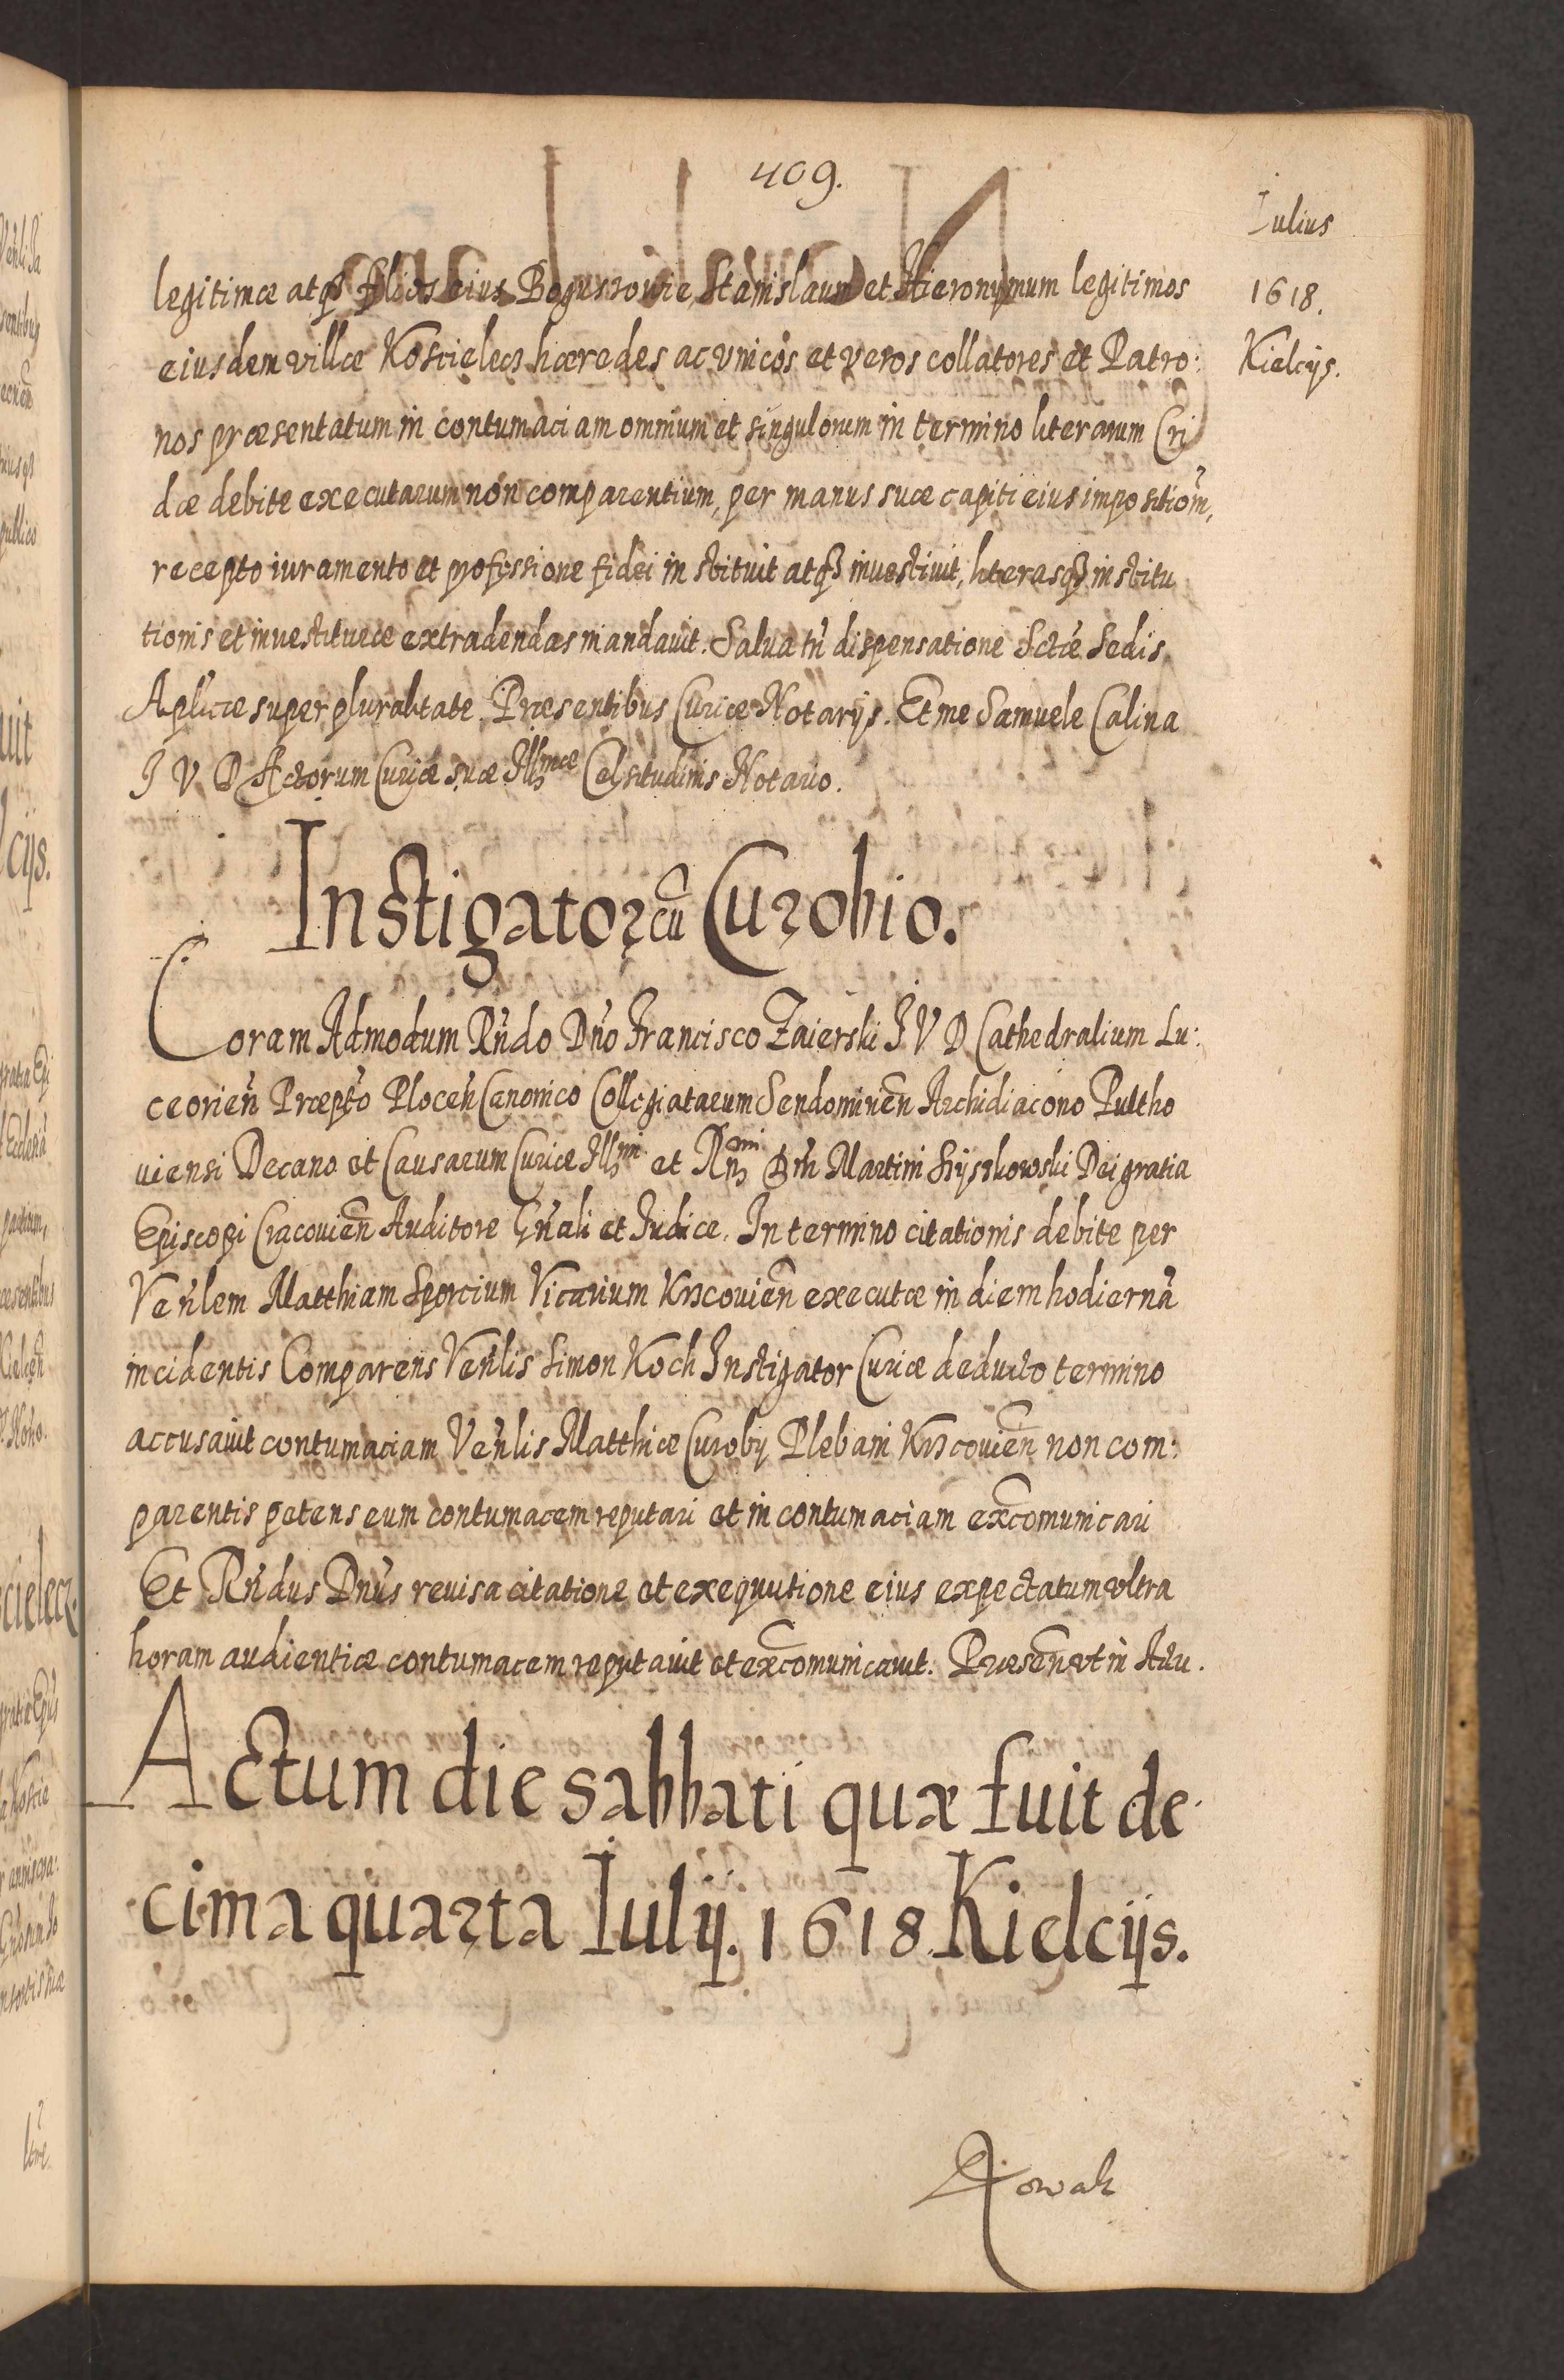 409.
Iulius
1618.
Kielcijs.
legitimæ atq3 filios eius Boguszowie, Stanislaum et Hieronymum legitimos
eiusdem villæ Koscielecz hæredes ac vnicos et veros collatores et Patro:
nos præsentatum in contumaciam omnium et singulorum in termino literarum Cri
dæ debite executarum non comparentium, per manus suæ capiti eius impositiom̃,
recepto iuramento et professione fidei instituit atq3 inuestiuit, literasq3 institu
tionis et inuestituræ extradendas mandauit. Salua tn̄ dispensatione Sctæ Sedis
Aplicæ super pluralitate. Præsentibus Curiæ Notarijs. Et me Samuele Calina
I V D Actorum Curiæ suæ Illmæ Celsitudinis Notario.
Instigator cū Curobio.
Coram Admodum Rn̄do Dn̄o Francisco Zaierski I V D Cathedralium Lu:
ceorien̄ Præpto Plocen̄ Canonico Collegiatarum Sendomirien̄ Archidiacono Pultho
uiensi Decano et Causarum Curiæ Illmi et Rmi Dn̄i Martini Szyszkowski Dei gratia
Episcopi Cracouien̄ Auditore Gn̄ali et Iudice. In termino citationis debite per
Ven̄lem Matthiam Sporcium Vicarium Krzcouien̄ executæ in diem hodiernā
incidentis Comparens Ven̄lis Simon Koch Instigator Curiæ deducto termino
accusauit contumaciam Ven̄lis Matthiæ Curobij Plebani Krzcouien̄ non com:
parentis petens eum contumacem reputari et in contumaciam excōmunicari
Et Rn̄dus Dn̄us reuisa citatione et exequutione eius expectatum vltra
horam audientiæ contumacem reputauit et excōmunicauit. Præsen̄ vt in Actu.
Actum die sabbati quæ fuit de
cima quarta Iulij. 1618 Kielcijs.
Nowak